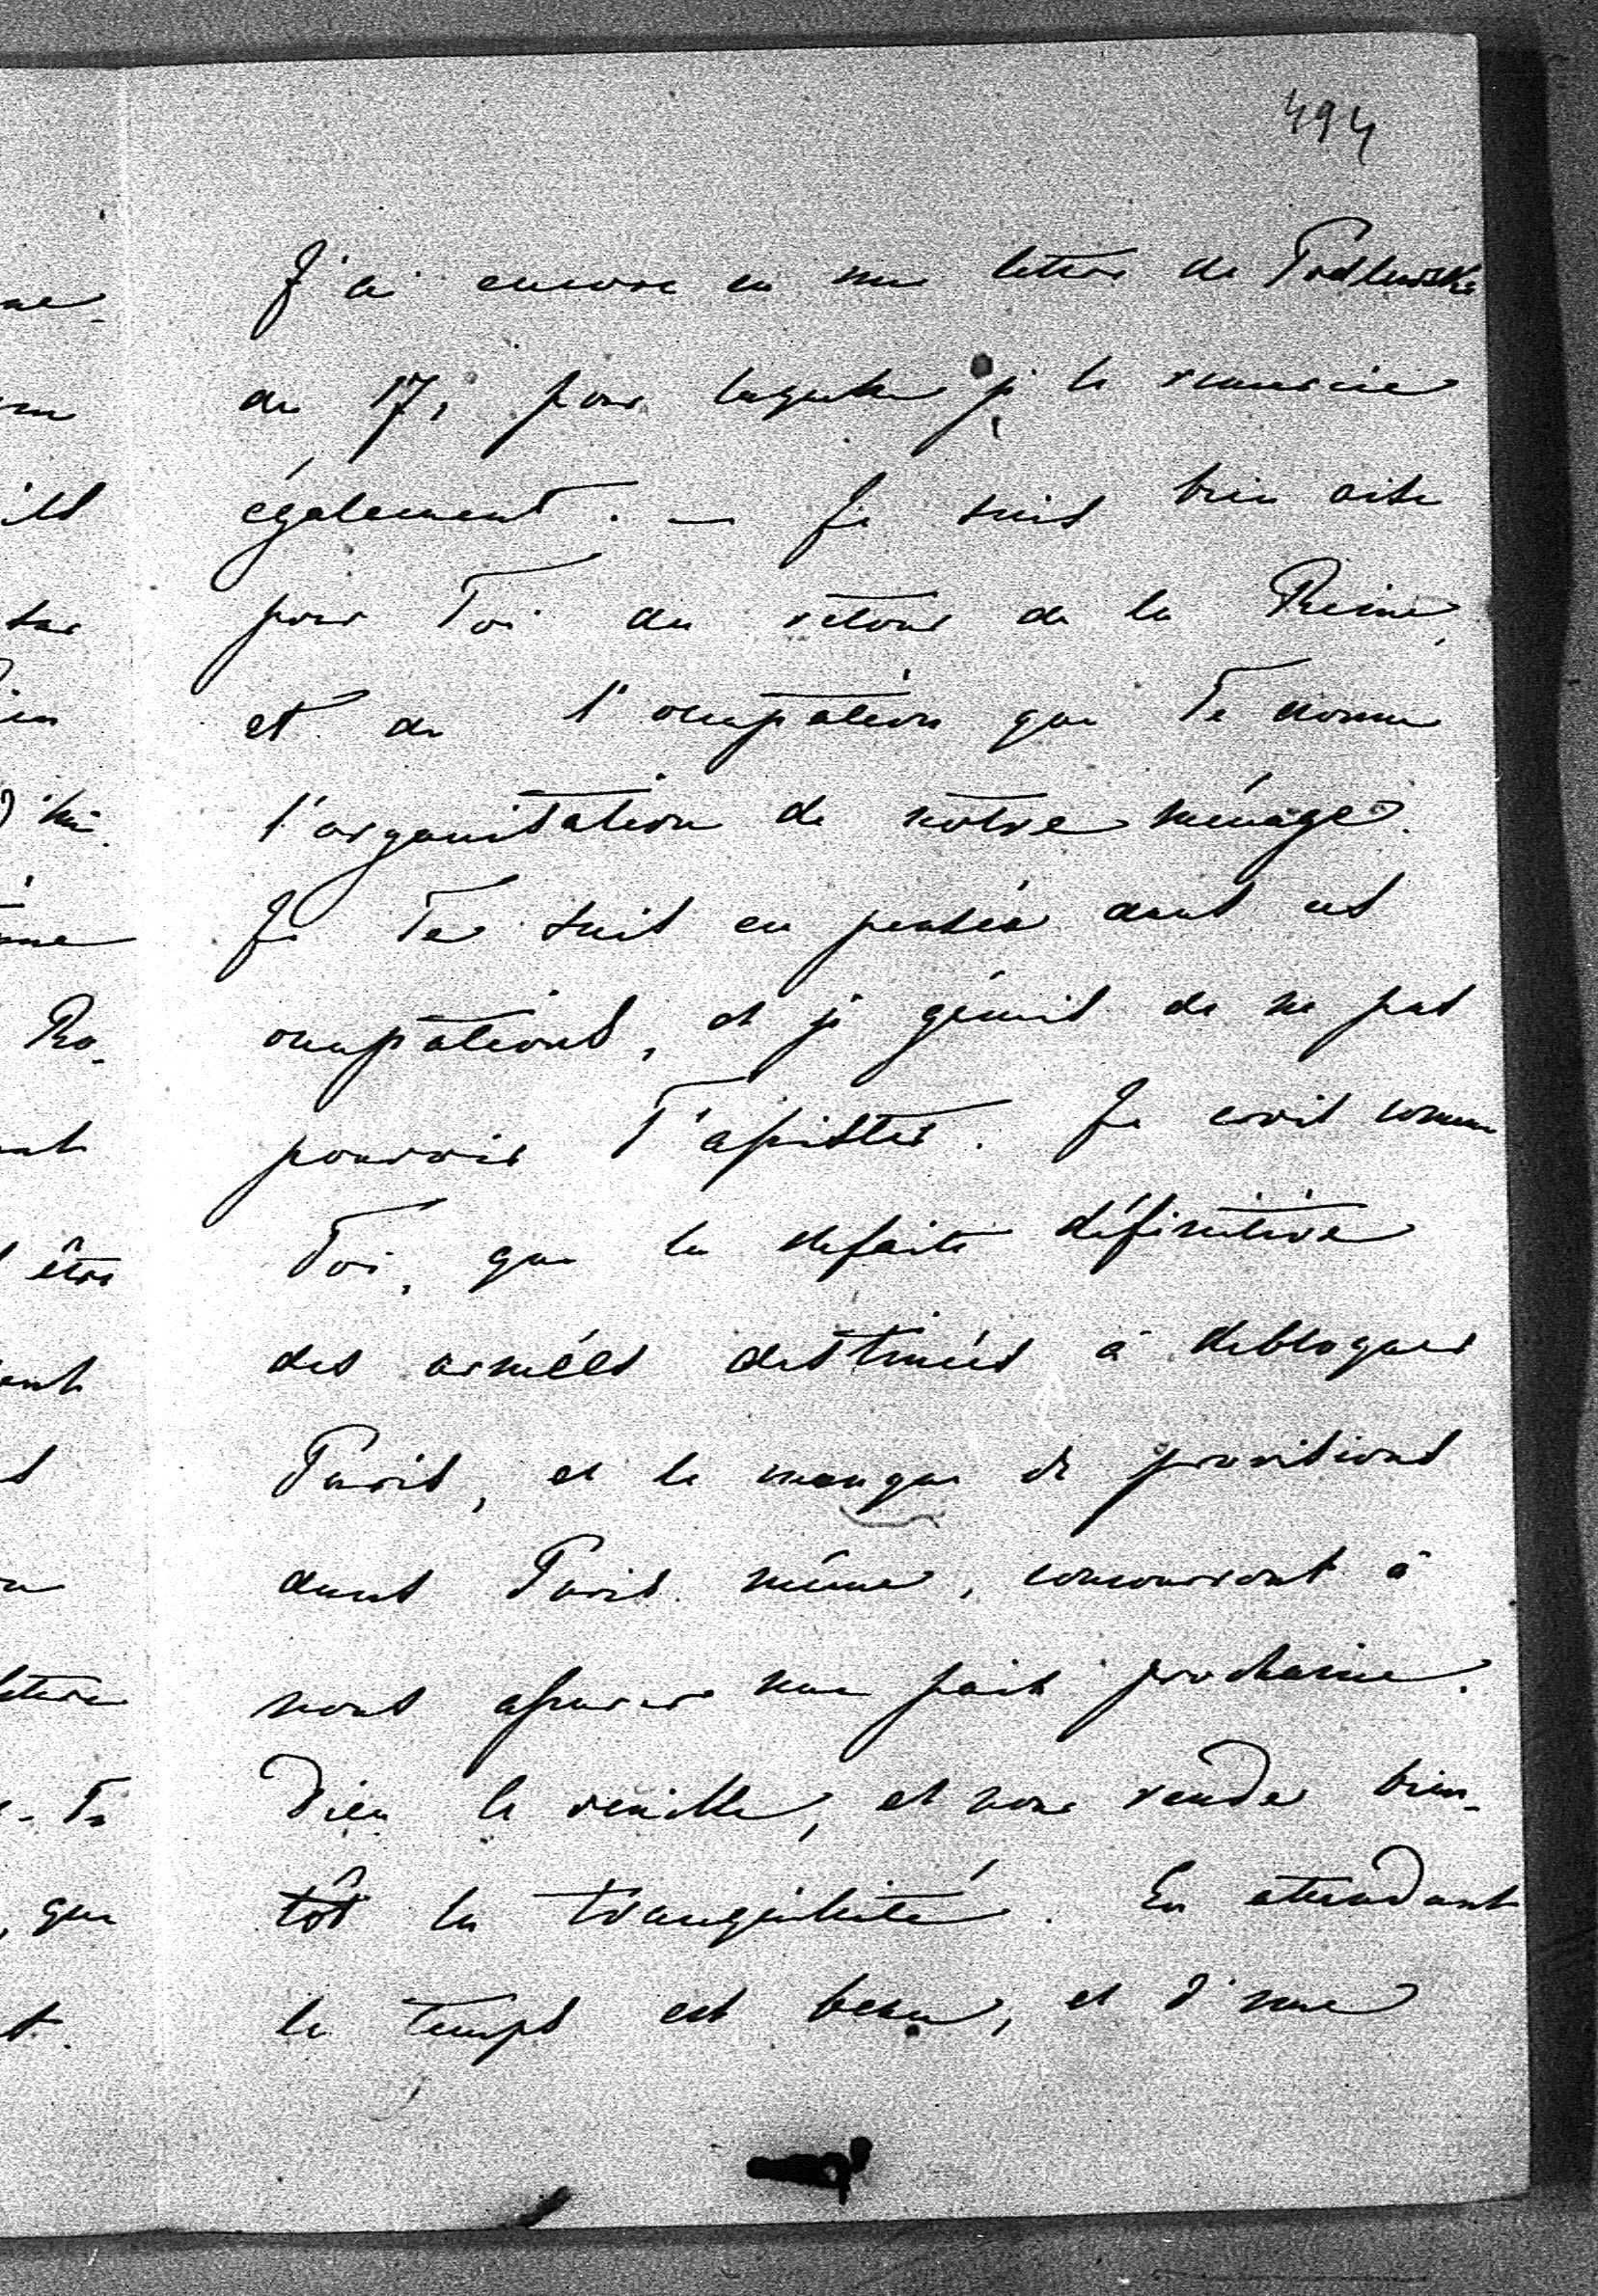 494
J'ai encore eu une lettre de Podlewski
du 17, pour laquelle je le remercie
également. — Je suis bien aise
pour Toi du retour de la Reine,
et de l'ocupation que Te donne
l'organisation de notre ménage.
Je Te suis en pensée dans ces
ocupations, et je gémis de ne pas
pouvoir T'assister. Je crois comme
Toi, que la defaite définitive
des armées destinées à debloquer
Paris, et le manque de provisions
dans Paris même, concourront à
nous assurer une paix prochaine.
Dieu le veuille, et nous rende bien-
tôt la tranquilité. En attendant
le temps est beau, et d'une